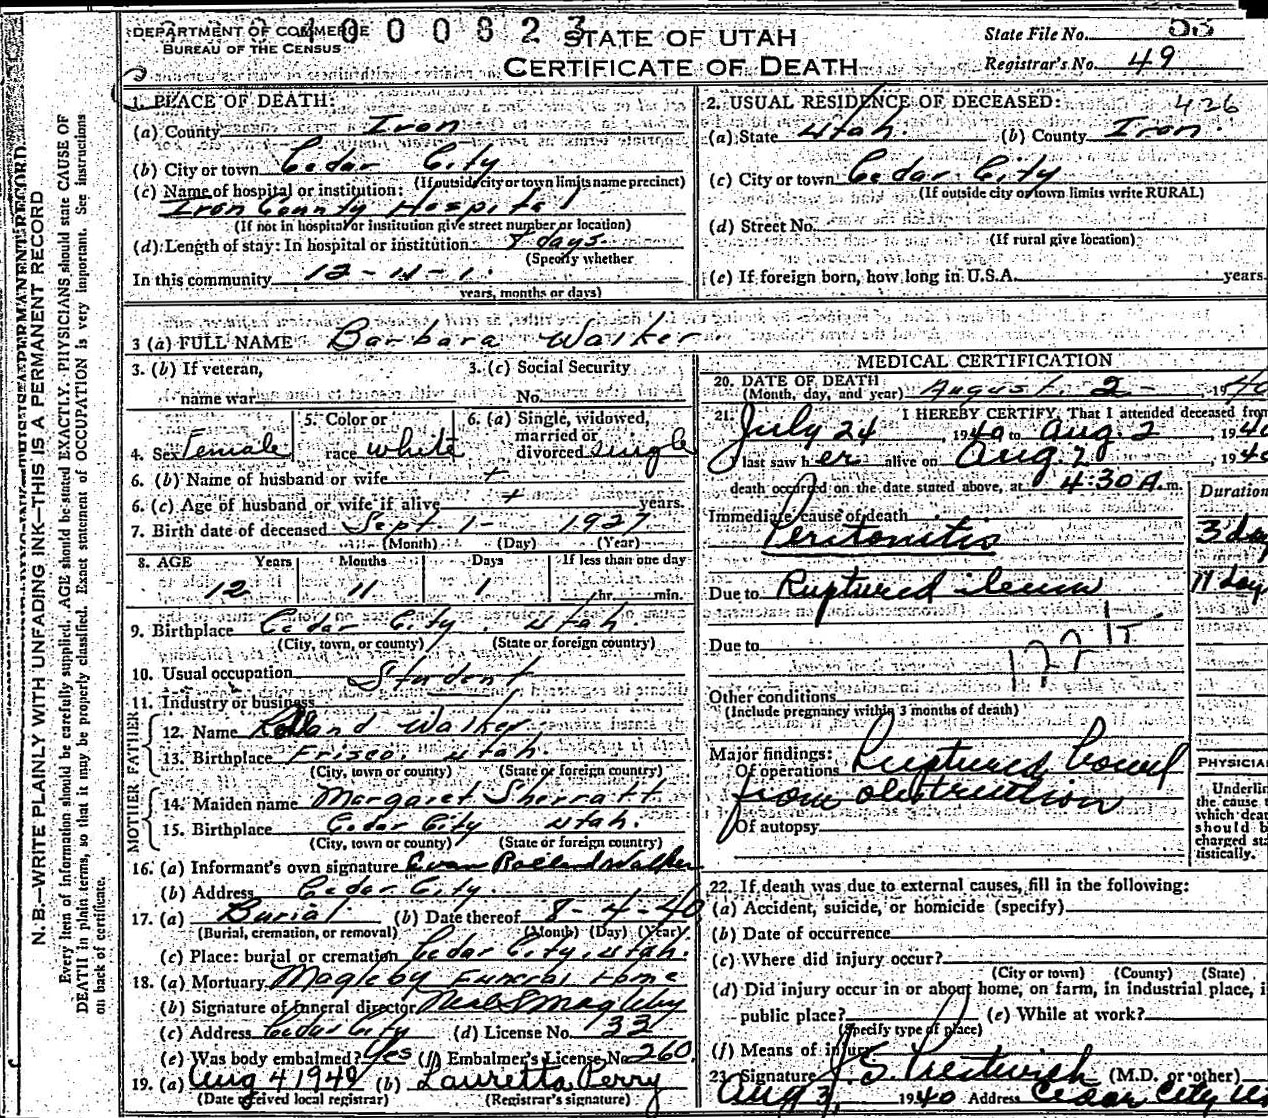 DEPARTMENT OF COMMERCE
BUREAU OF THE CENSUS
400823
STATE OF UTAH
CERTIFICATE OF DEATH
State File No.
Registrar's No. 49
1. PLACE OF DEATH:
(a) County Iron
(b) City or town Cedar City
(If outside city or town limits name precinct)
(c) Name of hospital or institution:
Iron County Hospital
(If not in hospital or institution give street number or location)
(d) Length of stay: In hospital or institution 8 days.
(Specify whether
In this community 12-11-1.
years, months or days)
2. USUAL RESIDENCE OF DECEASED: 426
(a) State Utah. (b) County Iron.
(c) City or town Cedar City
(If outside city or town limits write RURAL)
(d) Street No.
(If rural give location)
(e) If foreign born, how long in U.S.A. years.
3 (a) FULL NAME Barbara Walker.
3. (b) If veteran,
name war
3. (c) Social Security
No.
4. Sex Female
5. Color or
race white
6. (a) Single, widowed,
married or
divorced single
6. (b) Name of husband or wife +
6. (c) Age of husband or wife if alive + years.
7. Birth date of deceased Sept. 1- 1927
(Month) (Day) (Year)
8. AGE Years Months Days If less than one day
12 11 1 hr. min.
9. Birthplace Cedar City. Utah.
(City, town, or county) (State or foreign country)
10. Usual occupation Student
11. Industry or business
FATHER
12. Name Rolland Walker.
13. Birthplace Frisco. Utah.
(City, town or county) (State or foreign country)
MOTHER
14. Maiden name Margaret Sherratt.
15. Birthplace Cedar City Utah.
(City, town or county) (State or foreign country)
16. (a) Informant's own signature Evan Rolland Walker
(b) Address Cedar City.
17. (a) Burial (b) Date thereof 8-4-40
(Burial, cremation, or removal) (Month) (Day) (Year)
(c) Place: burial or cremation Cedar City, Utah.
18. (a) Mortuary Magleby Funeral Home
(b) Signature of funeral director Magleby
(c) Address Cedar City (d) License No. 33
(e) Was body embalmed? Yes (f) Embalmer's License No. 260
19. (a) Aug 4 1940 (b) Lauretta Perry
(Date received local registrar) (Registrar's signature)
MEDICAL CERTIFICATION
20. DATE OF DEATH
(Month, day, and year) August. 2- 1940
21. I HEREBY CERTIFY, That I attended deceased from
July 24, 1940 to Aug. 2, 1940
last saw her alive on Aug. 2, 1940
death occurred on the date stated above, at 4:30 A.m.
Duration
Immediate cause of death
Peritonitis 3 day
Due to Ruptured ileum 11 day
Due to
Other conditions
(Include pregnancy within 3 months of death)
Major findings:
Of operations Ruptured bowel
from obstruction
Of autopsy
PHYSICIA
Underlin
the cause
which deat
should b
charged sta
tistically.
22. If death was due to external causes, fill in the following:
(a) Accident, suicide, or homicide (specify)
(b) Date of occurrence
(c) Where did injury occur?
(City or town) (County) (State)
(d) Did injury occur in or about home, on farm, in industrial place, i
public place? (e) While at work?
(Specify type of place)
(f) Means of injury
23. Signature J. S. Prestwich (M.D. or other)
Aug 3, 1940 Address Cedar City
N. B.—WRITE PLAINLY WITH UNFADING INK—THIS IS A PERMANENT RECORD
Every item of information should be carefully supplied. AGE should be stated EXACTLY. PHYSICIANS should state CAUSE OF
DEATH in plain terms, so that it may be properly classified. Exact statement of OCCUPATION is very important. See instructions
on back of certificate.